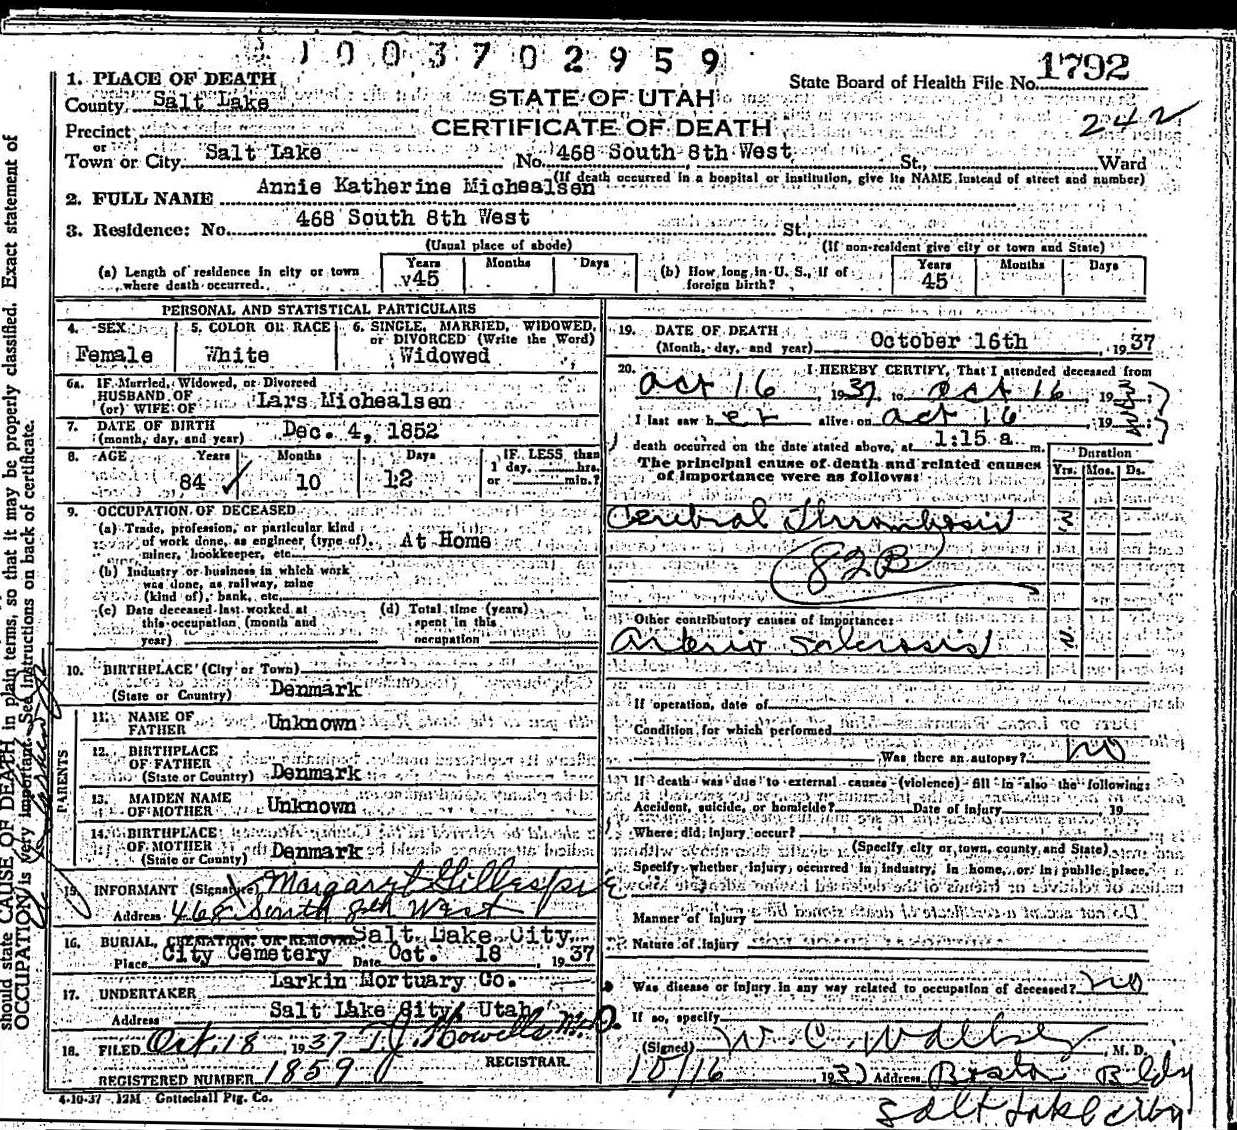 1003702959
1. PLACE OF DEATH
State Board of Health File No. 1792
County Salt Lake
STATE OF UTAH
242
Precinct
CERTIFICATE OF DEATH
or
Town or City Salt Lake No. 468 South 8th West St., Ward
(If death occurred in a hospital or institution, give its NAME instead of street and number)
2. FULL NAME Annie Katherine Michealsen
3. Residence: No. 468 South 8th West St.
(Usual place of abode) (If non-resident give city or town and State)
(a) Length of residence in city or town where death occurred. Years v45 Months Days
(b) How long in U. S., if of foreign birth? Years 45 Months Days
PERSONAL AND STATISTICAL PARTICULARS
4. SEX Female
5. COLOR OR RACE White
6. SINGLE, MARRIED, WIDOWED, or DIVORCED (Write the Word) Widowed
6a. IF Married, Widowed, or Divorced
HUSBAND OF
(or) WIFE OF Lars Michealsen
7. DATE OF BIRTH
(month, day, and year) Dec. 4, 1852
8. AGE Years 84 Months 10 Days 12
IF LESS than
1 day, hrs.
or min.?
9. OCCUPATION OF DECEASED
(a) Trade, profession, or particular kind
of work done, as engineer (type of), At Home
miner, bookkeeper, etc.
(b) Industry or business in which work
was done, as railway, mine
(kind of), bank, etc.
(c) Date deceased last worked at
this occupation (month and
year)
(d) Total time (years)
spent in this
occupation
10. BIRTHPLACE (City or Town)
(State or Country) Denmark
PARENTS
11. NAME OF
FATHER Unknown
12. BIRTHPLACE
OF FATHER
(State or Country) Denmark
13. MAIDEN NAME
OF MOTHER Unknown
14. BIRTHPLACE
OF MOTHER
(State or Country) Denmark
15. INFORMANT (Signature) Margaret Gillespie
Address 468 South 8th West
16. BURIAL, CREMATION, OR REMOVAL Salt Lake City
Place City Cemetery Date Oct. 18, 1937
17. UNDERTAKER Larkin Mortuary Co.
Address Salt Lake City, Utah
18. FILED Oct. 18, 1937 T. J. Howells M.D.
REGISTRAR.
REGISTERED NUMBER 1859
4-10-37 12M Gottschall Ptg. Co.
19. DATE OF DEATH
(Month, day, and year) October 16th, 1937
20. I HEREBY CERTIFY, That I attended deceased from
Oct 16, 1937 to Oct 16, 1937
I last saw her alive on Oct 16, 1937
death occurred on the date stated above, at 1:15 a m.
The principal cause of death and related causes
of importance were as follows:
Duration
Yrs. Mos. Ds.
Cerebral Thrombosis
82B
Other contributory causes of importance:
Arterio Sclerosis
If operation, date of
Condition for which performed
Was there an autopsy? no
If death was due to external causes (violence) fill in also the following:
Accident, suicide, or homicide? Date of injury 19
Where did injury occur?
(Specify city or town, county, and State)
Specify whether injury occurred in industry, in home, or in public place.
Manner of Injury
Nature of Injury
Was disease or injury in any way related to occupation of deceased? no
If so, specify
(Signed) W. C. M. D.
10/16 1937 Address Boston Bldg
Salt Lake City
should state CAUSE OF DEATH in plain terms, so that it may be properly classified. Exact statement of
OCCUPATION is very important. See instructions on back of certificate.